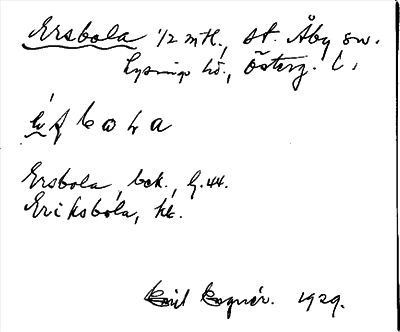 Ersbola 1/2 mtl., St. Åby sn.
Lysings hd., Österg. l.
Ersbola, bek., G.44.
Eriksbola, kk.
Emil Eagnér. 1929.